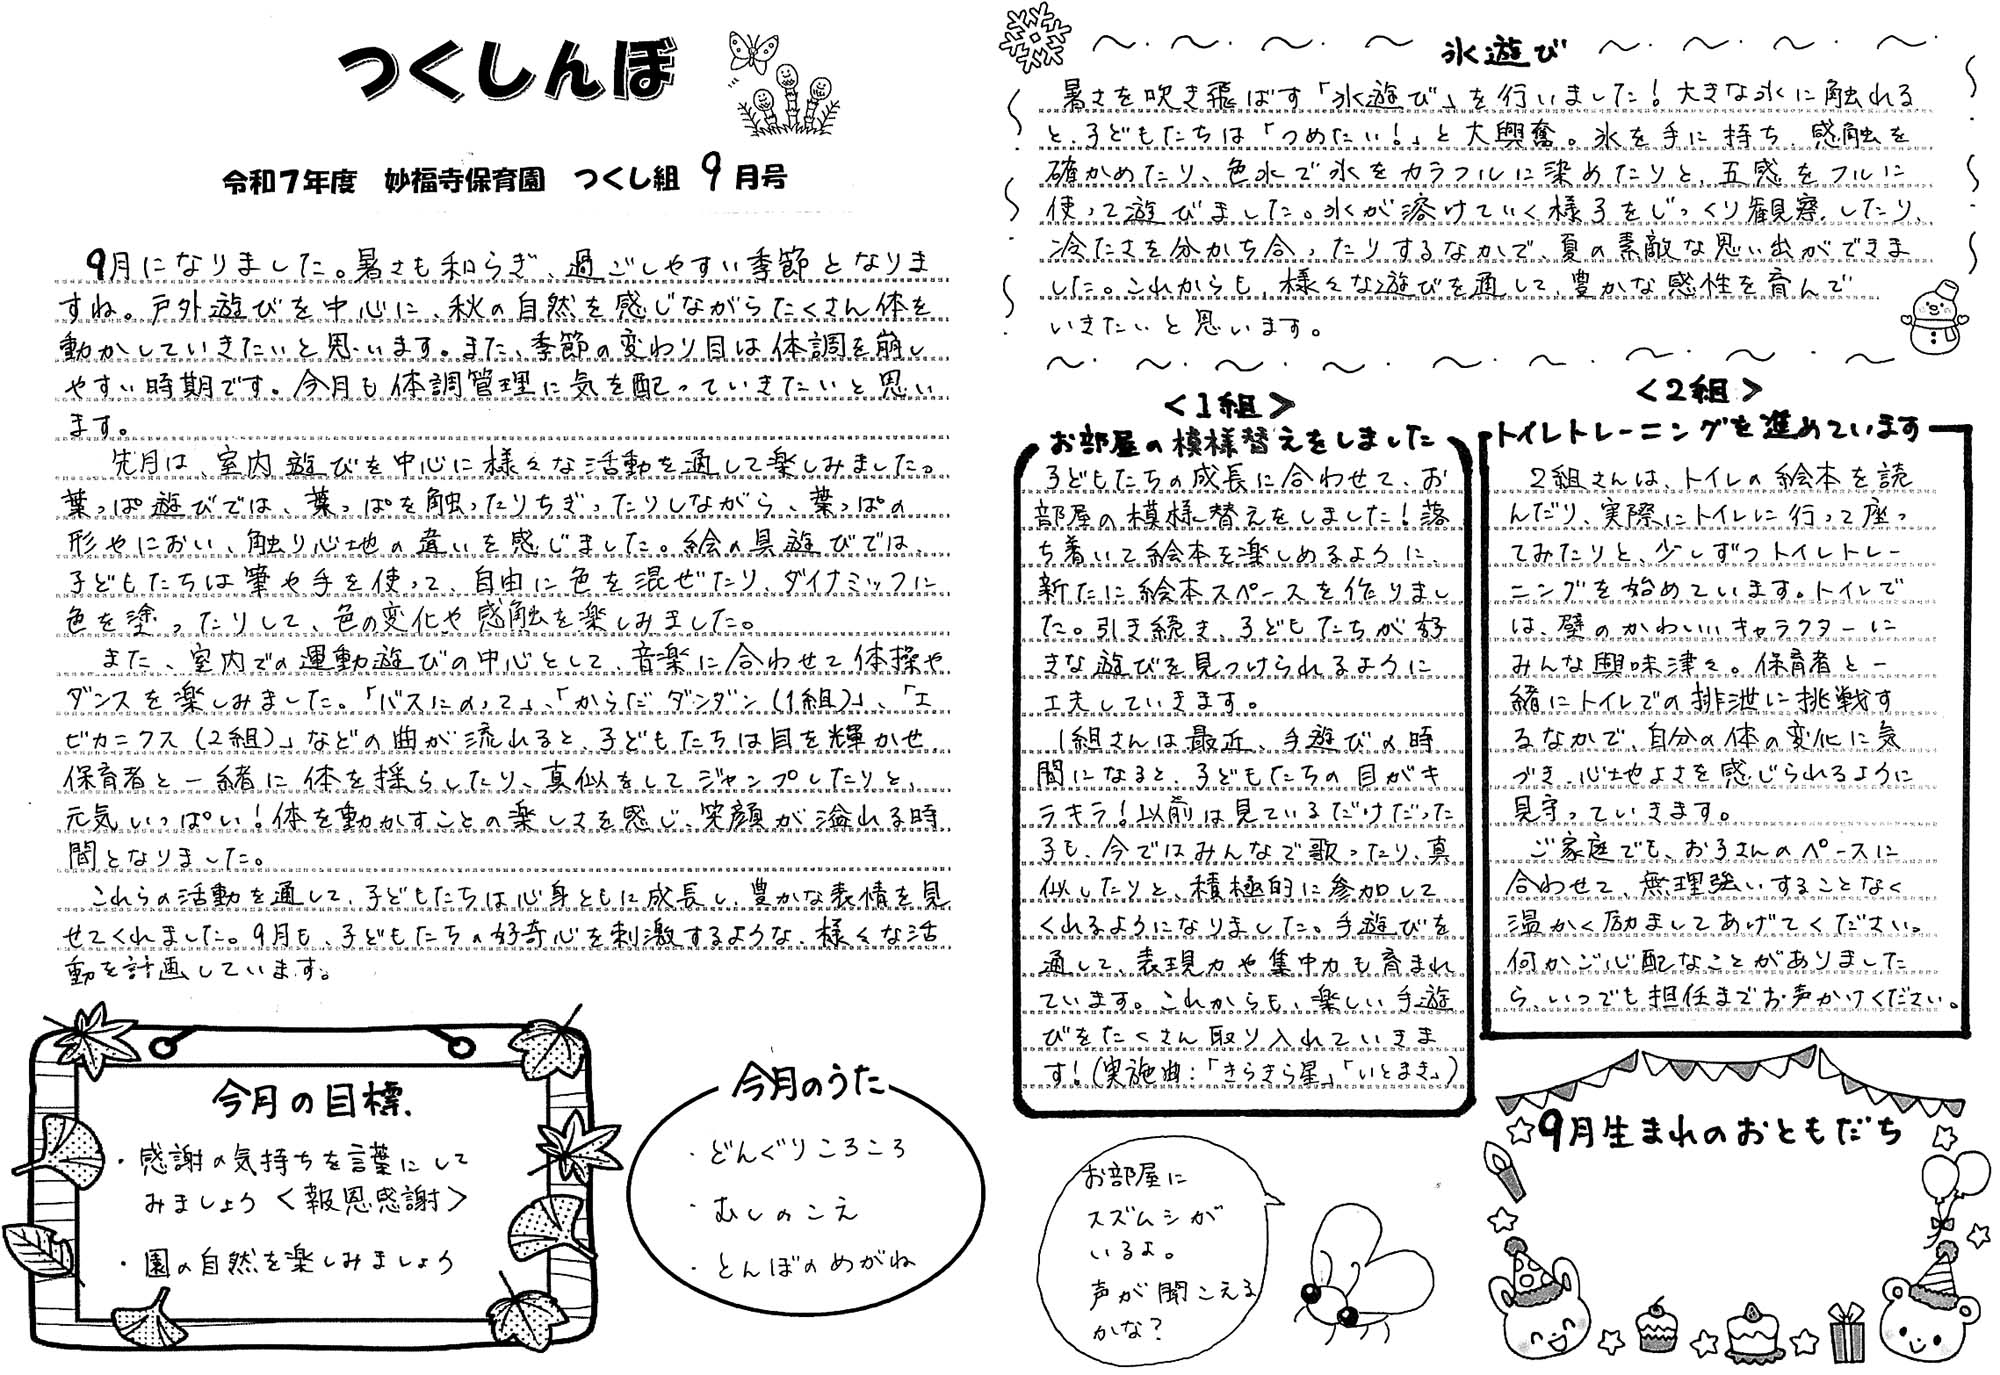 つくしんぼ
令和7年度 妙福寺保育園 つくし組 9月号
9月になりました。暑さも和らぎ、過ごしやすい季節となりま
すね。戸外遊びを中心に、秋の自然を感じながらたくさん体を
動かしていきたいと思います。また、季節の変わり目は体調を崩し
やすい時期です。今月も体調管理に気を配っていきたいと思い
ます。
先月は、室内遊びを中心に様々な活動を通して楽しみました。
葉っぱ遊びでは、葉っぱを触ったりちぎったりしながら、葉っぱの
形やにおい、触り心地の違いを感じました。絵の具遊びでは、
子どもたちは筆や手を使って、自由に色を混ぜたり、ダイナミックに
色を塗ったりして、色の変化や感触を楽しみました。
また、室内での運動遊びの中心として、音楽に合わせて体操や
ダンスを楽しみました。「バスにのって」、「からだダンダン(1組)」、「エ
ビカニクス(2組)」などの曲が流れると、子どもたちは目を輝かせ
保育者と一緒に体を揺らしたり、真似をしてジャンプしたりと、
元気いっぱい!体を動かすことの楽しさを感じ、笑顔が溢れる時
間となりました。
これらの活動を通して、子どもたちは心身ともに成長し、豊かな表情を見
せてくれました。9月も、子どもたちの好奇心を刺激するような、様々な活
動を計画しています。
今月の目標
・感謝の気持ちを言葉にして
みましょう<報恩感謝>
・園の自然を楽しみましょう
今月のうた
・どんぐりころころ
・むしのこえ
・とんぼのめがね
氷遊び
暑さを吹き飛ばす「氷遊び」を行いました!大きな氷に触れる
と、子どもたちは「つめたい!」と大興奮。氷を手に持ち、感触を
確かめたり、色水で氷をカラフルに染めたりと、五感をフルに
使って遊びました。氷が溶けていく様子をじっくり観察したり、
冷たさを分かち合ったりするなかで、夏の素敵な思い出ができま
した。これからも、様々な遊びを通して、豊かな感性を育んで
いきたいと思います。
<1組>
お部屋の模様替えをしました
子どもたちの成長に合わせて、お
部屋の模様替えをしました!落
ち着いて絵本を楽しめるように、
新たに絵本スペースを作りまし
た。引き続き、子どもたちが好
きな遊びを見つけられるように
工夫していきます。
1組さんは最近、手遊びの時
間になると、子どもたちの目がキ
ラキラ!以前は見ているだけだった
子も、今ではみんなで歌ったり、真
似したりと、積極的に参加して
くれるようになりました。手遊びを
通して、表現力や集中力も育まれ
ています。これからも、楽しい手遊
びをたくさん取り入れていきま
す!(実施曲:「きらきら星」「いとまき」)
<2組>
トイレトレーニングを進めています
2組さんは、トイレの絵本を読
んだり、実際にトイレに行って座っ
てみたりと、少しずつトイレトレー
ニングを始めています。トイレで
は、壁のかわいいキャラクターに
みんな興味津々。保育者と一
緒にトイレでの排泄に挑戦す
るなかで、自分の体の変化に気
づき、心地よさを感じられるように
見守っていきます。
ご家庭でも、お子さんのペースに
合わせて、無理強いすることなく
温かく励ましてあげてください。
何かご心配なことがありました
ら、いつでも担任までお声かけください。
お部屋に
スズムシが
いるよ。
声が聞こえる
かな?
9月生まれのおともだち